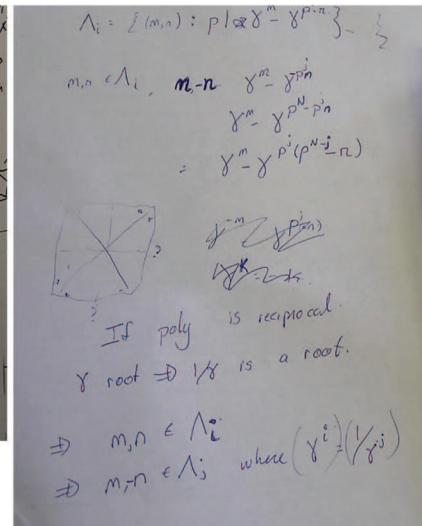 Λᵢ = {(m,n) : p | γᵐ - γ^{p^i n}}
m,n ∈ Λᵢ, m,-n γᵐ - γ^{-p^j n}
γᵐ - γ^{p^N - p^j n}
= γᵐ - γ^{p^j(p^{N-j} - n)}
?
?
If poly is reciprocal.
γ root ⇒ 1/γ is a root.
⇒ m,n ∈ Λᵢ
⇒ m,-n ∈ Λⱼ where (γ^i) = (1/γ^j)